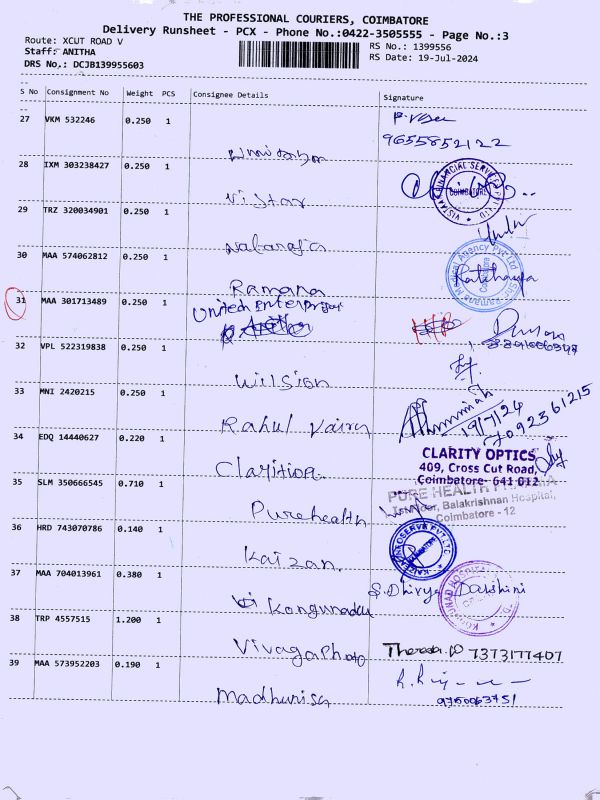 THE PROFESSIONAL COURIERS, COIMBATORE
Delivery Runsheet - PCX - Phone No.:0422-3505555 - Page No.:3
Route: XCUT ROAD V
Staff: ANITHA
DRS No.: DCJB139955603
RS No.: 1399556
RS Date: 19-Jul-2024
S No Consignment No Weight PCS Consignee Details Signature
27 VKM 532246 0.250 1
9655852122
28 IXM 303238427 0.250 1
Vistar
VISTAAR FINANCIAL SERVICES PVT LTD
COIMBATORE
29 TRZ 320034901 0.250 1
30 MAA 574062812 0.250 1
Ramana
Ramana Medical Agency Pvt Ltd
Coimbatore
31 MAA 301713489 0.250 1
United Enterprises
32 VPL 522319838 0.250 1
Willsion
33 MNI 2420215 0.250 1
Rahul
19/7/24
7092361215
34 EDQ 14440627 0.220 1
Clarition
CLARITY OPTICS
409, Cross Cut Road,
Coimbatore- 641 012
35 SLM 350666545 0.710 1
Purehealth
PURE HEALTH PHARMA
Floor, Balakrishnan Hospital,
Coimbatore - 12
36 HRD 743070786 0.140 1
Kaizan.
37 MAA 704013961 0.380 1
Kongunadu
S. Dhivya Darshini
KONGUNAD HOSPITAL
38 TRP 4557515 1.200 1
Vivagaphoto
Theresa.W 7373177407
39 MAA 573952203 0.190 1
Madhurisa
9750063751